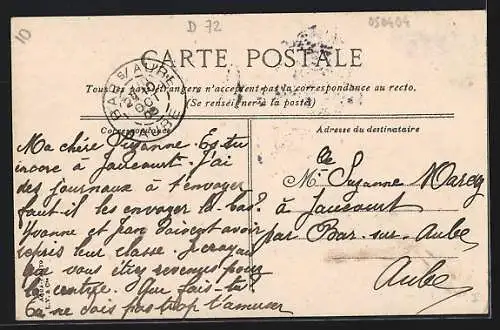 10
D 72
050404
CARTE POSTALE
Tous les pays étrangers n'acceptent pas la correspondance au recto.
(Se renseigner à la poste)
BAR S/ AUBE
AUBE
Correspondance
Ma chère Suzanne. Es-tu
encore à Jaucourt. J'ai
des journaux à t'envoyer
faut-il les envoyer là bas?
Yvonne et Jean doivent avoir
repris leur classe. Je croyais
que vous étiez revenus pour
la rentrée. Que fais-tu?
Tu ne dois pas trop t'amuser
Adresse du destinataire
Mlle Suzanne
à Jaucourt
par Bar-sur-Aube
Aube